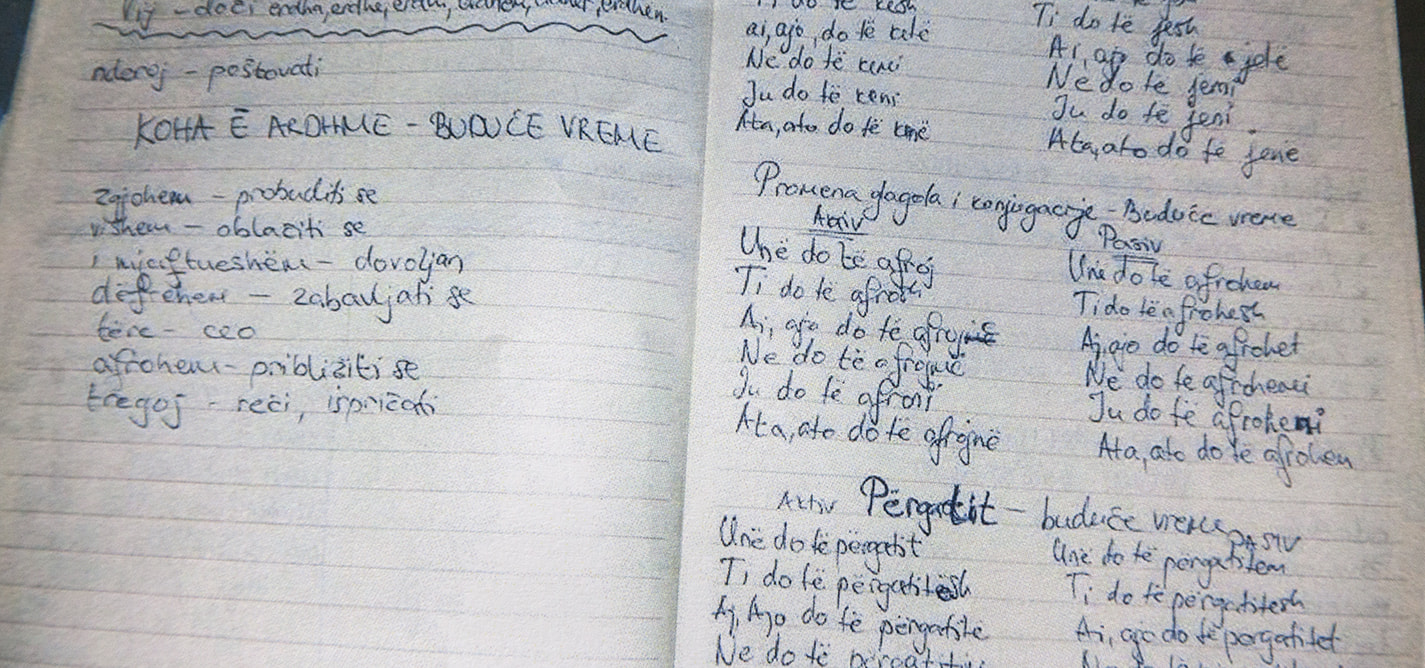 Vij - doći erdha, erdhe, erdhi, erdhën.
nderoj - poštovati
KOHA Ē ARDHME - BUDUĆE VREME
zgjohem - probuditi se
vishem - oblačiti se
i mjaftueshëm - dovoljan
dëfrehem - zabavljati se
tëre - ceo
afrohem - približiti se
tregoj - reći, ispričati
Ti do të kesh
ai, ajo, do të ketë
Ne do të kemi
Ju do të keni
Ata, ato do të kenë
Ti do të jesh
Ai, ajo do të jetë
Ne do te jemi
Ju do të jeni
Ata, ato do të jenë
Promena glagola i konjugacije - Buduće vreme
Aktiv
Unë do të afroj
Ti do të afrosh
Ai, ajo do të afrojë
Ne do të afrojmë
Ju do të afroni
Ata, ato do të afrojnë
Pasiv
Unë do të afrohem
Ti do të afrohesh
Aj, ajo do të afrohet
Ne do te afrohemi
Ju do të afroheni
Ata, ato do të afrohen
Aktiv Përgatit - buduće vreme PASIV
Unë do të përgatit
Ti do të përgatitësh
Aj, Ajo do të përgatitë
Ne do të
Unë do të përgatitem
Ti do të përgatitesh
Ai, ajo do të pergatitet